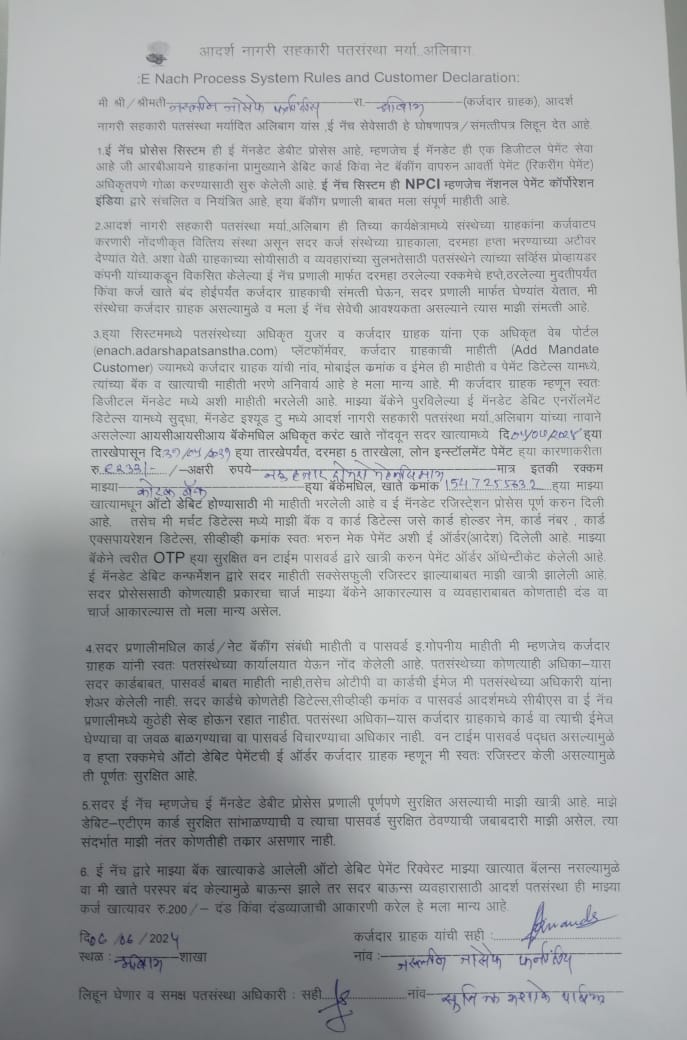 आदर्श नागरी सहकारी पतसंस्था मर्या.अलिबाग
:E Nach Process System Rules and Customer Declaration:
मी श्री/श्रीमती जोसेफ रा. (कर्जदार ग्राहक), आदर्श
नागरी सहकारी पतसंस्था मर्यादित अलिबाग यांस ,ई नॅच सेवेसाठी हे घोषणापत्र/संमत्तीपत्र लिहून देत आहे.
1.ई नॅच प्रोसेस सिस्टिम ही ई मॅनडेट डेबीट प्रोसेस आहे, म्हणजेच ई मॅनडेट ही एक डिजीटल पेमेंट सेवा
आहे जी आरबीआयने ग्राहकांना प्रामुख्याने डेबिट कार्ड किंवा नेट बॅकींग वापरुन आवर्ती पेमेंट (रिकरींग पेमेंट)
अधिकृतपणे गोळा करण्यासाठी सुरु केलेली आहे. ई नॅच सिस्टिम ही NPCI म्हणजेच नॅशनल पेमेंट कॉर्पोरेशन
इंडिया द्वारे संचलित व नियंत्रित आहे, ह्या बॅकींग प्रणाली बाबत मला संपूर्ण माहीती आहे.
2.आदर्श नागरी सहकारी पतसंस्था मर्या.,अलिबाग ही तिच्या कार्यक्षेत्रामध्ये संस्थेच्या ग्राहकांना कर्जवाटप
करणारी नोंदणीकृत वित्तिय संस्था असून सदर कर्ज संस्थेच्या ग्राहकाला, दरमहा हप्ता भरण्याच्या अटीवर
देण्यांत येते. अशा वेळी ग्राहकाच्या सोयीसाठी व व्यवहारांच्या सुलभतेसाठी पतसंस्थेने त्यांच्या सर्व्हिस प्रोव्हायडर
कंपनी यांच्याकडून विकसित केलेल्या ई नॅच प्रणाली मार्फत दरमहा ठरलेल्या रक्कमेचे हप्ते,ठरलेल्या मुदतीपर्यत
किंवा कर्ज खाते बंद होईपर्यत कर्जदार ग्राहकाची संमत्ती घेऊन, सदर प्रणाली मार्फत घेण्यांत येतात, मी
संस्थेचा कर्जदार ग्राहक असल्यामुळे व मला ई नॅच सेवेची आवश्यकता असल्याने त्यास माझी संमत्ती आहे.
3.ह्या सिस्टममध्ये पतसंस्थेच्या अधिकृत युजर व कर्जदार ग्राहक यांना एक अधिकृत वेब पोर्टल
(enach.adarshapatsanstha.com) प्लॅटफॉर्मवर, कर्जदार ग्राहकाची माहीती (Add Mandate
Customer) ज्यामध्ये कर्जदार ग्राहक यांची नांव, मोबाईल कमांक व ईमेल ही माहीती व पेमेंट डिटेल्स यामध्ये,
त्यांच्या बँक व खात्याची माहीती भरणे अनिवार्य आहे हे मला मान्य आहे. मी कर्जदार ग्राहक म्हणून स्वतः
डिजीटल मॅनडेट मध्ये अशी माहीती भरलेली आहे. माझ्या बँकेने पुरविलेल्या ई मॅनडेट डेबिट एनरॉलमेंट
डिटेल्स यामध्ये सुद्धा, मॅनडेट इश्यूड टु मध्ये आदर्श नागरी सहकारी पतसंस्था मर्या.,अलिबाग यांच्या नावाने
असलेल्या आयसीआयसीआय बॅकेमधिल अधिकृत करंट खाते नोंदवून सदर खात्यामध्ये दि. ह्या
तारखेपासून दि. ह्या तारखेपर्यंत, दरमहा 5 तारखेला, लोन इन्स्टॉलमेंट पेमेंट ह्या कारणाकरीता
रु. /-अक्षरी रुपये मात्र इतकी रक्कम
माझ्या कोटक बँक ह्या बॅकेमधिल, खाते कमांक 1547255332 ह्या माझ्या
खात्यामधून ऑटो डेबिट होण्यासाठी मी माहीती भरलेली आहे व ई मॅनडेट रजिस्ट्रेशन प्रोसेस पूर्ण करुन दिली
आहे. तसेच मी मर्चंट डिटेल्स मध्ये माझी बँक व कार्ड डिटेल्स जसे कार्ड होल्डर नेम, कार्ड नंबर , कार्ड
एक्सपायरेशन डिटेल्स, सीव्हीव्ही कमांक स्वतः भरुन मेक पेमेंट अशी ई ऑर्डर(आदेश) दिलेली आहे. माझ्या
बॅकेने त्वरीत OTP ह्या सुरक्षित वन टाईम पासवर्ड द्वारे खात्री करुन पेमेंट ऑर्डर ऑथेन्टीकेट केलेली आहे.
ई मॅनडेट डेबिट कन्फर्मेशन द्वारे सदर माहीती सक्सेसफुली रजिस्टर झाल्याबाबत माझी खात्री झालेली आहे.
सदर प्रोसेससाठी कोणत्याही प्रकारचा चार्ज माझ्या बॅकेने आकारल्यास व व्यवहाराबाबत कोणताही दंड वा
चार्ज आकारल्यास तो मला मान्य असेल.
4.सदर प्रणालीमधिल कार्ड/नेट बॅकींग संबंधी माहीती व पासवर्ड इ.गोपनीय माहीती मी म्हणजेच कर्जदार
ग्राहक यांनी स्वतः पतसंस्थेच्या कार्यालयात येऊन नोंद केलेली आहे. पतसंस्थेच्या कोणत्याही अधिका-यास
सदर कार्डबाबत, पासवर्ड बाबत माहीती नाही,तसेच ओटीपी वा कार्डची ईमेज मी पतसंस्थेच्या अधिकारी यांना
शेअर केलेली नाही. सदर कार्डचे कोणतेही डिटेल्स,सीव्हीव्ही कमांक व पासवर्ड आदर्शमध्ये सीबीएस वा ई नॅच
प्रणालीमध्ये कुठेही सेव्ह होऊन रहात नाहीत. पतसंस्था अधिका-यास कर्जदार ग्राहकाचे कार्ड वा त्याची ईमेज
घेण्याचा वा जवळ बाळगण्याचा वा पासवर्ड विचारण्याचा अधिकार नाही. वन टाईम पासवर्ड पद्धत असल्यामुळे
व हप्ता रक्कमेचे ऑटो डेबिट पेमेंटची ई ऑर्डर कर्जदार ग्राहक म्हणून मी स्वतः रजिस्टर केली असल्यामुळे
ती पूर्णतः सुरक्षित आहे.
5.सदर ई नॅच म्हणजेच ई मॅनडेट डेबीट प्रोसेस प्रणाली पूर्णपणे सुरक्षित असल्याची माझी खात्री आहे. माझे
डेबिट-एटीएम कार्ड सुरक्षित सांभाळण्याची व त्याचा पासवर्ड सुरक्षित ठेवण्याची जबाबदारी माझी असेल, त्या
संदर्भात माझी नंतर कोणतीही तकार असणार नाही.
6. ई नॅच द्वारे माझ्या बॅक खात्याकडे आलेली ऑटो डेबिट पेमेंट रिक्वेस्ट माझ्या खात्यात बॅलंन्स नसल्यामुळे
वा मी खाते परस्पर बंद केल्यामुळे बाऊन्स झाले तर सदर बाऊन्स व्यवहारासाठी आदर्श पतसंस्था ही माझ्या
कर्ज खात्यावर रु.200/- दंड किंवा दंडव्याजाची आकारणी करेल हे मला मान्य आहे.
दि 06/06/2024 कर्जदार ग्राहक यांची सही :
स्थळ : शाखा नांव : जोसेफ
लिहून घेणार व समक्ष पतसंस्था अधिकारी : सही नांव